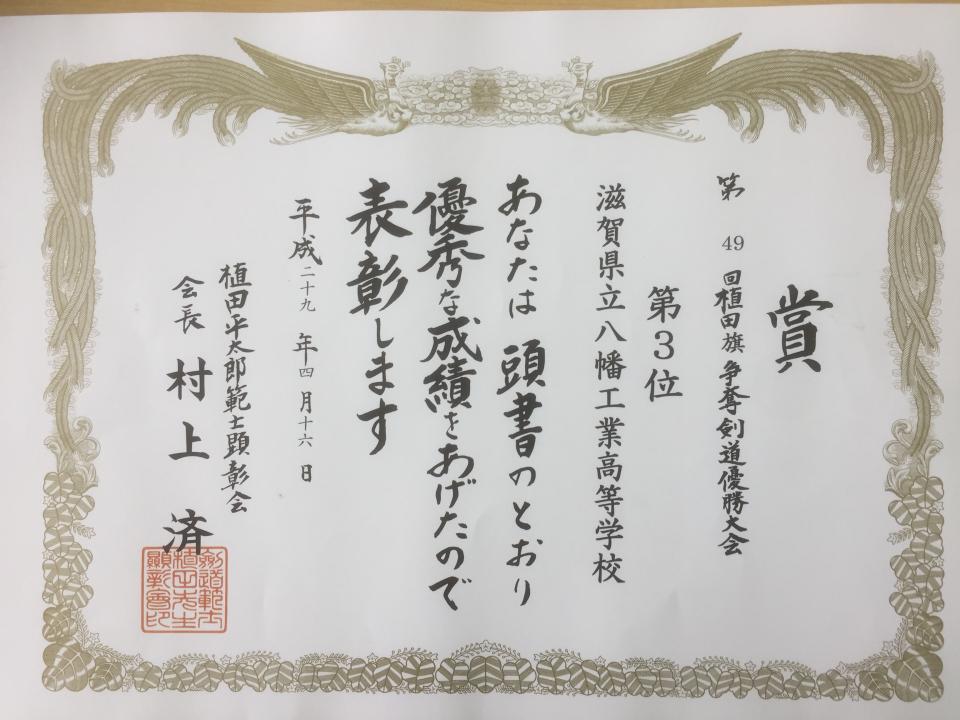 賞
第49回植田旗争奪剣道優勝大会
第3位
滋賀県立八幡工業高等学校
あなたは頭書のとおり
優秀な成績をあげたので
表彰します
平成二十九年四月十六日
植田平太郎範士顕彰会
会長 村上 済